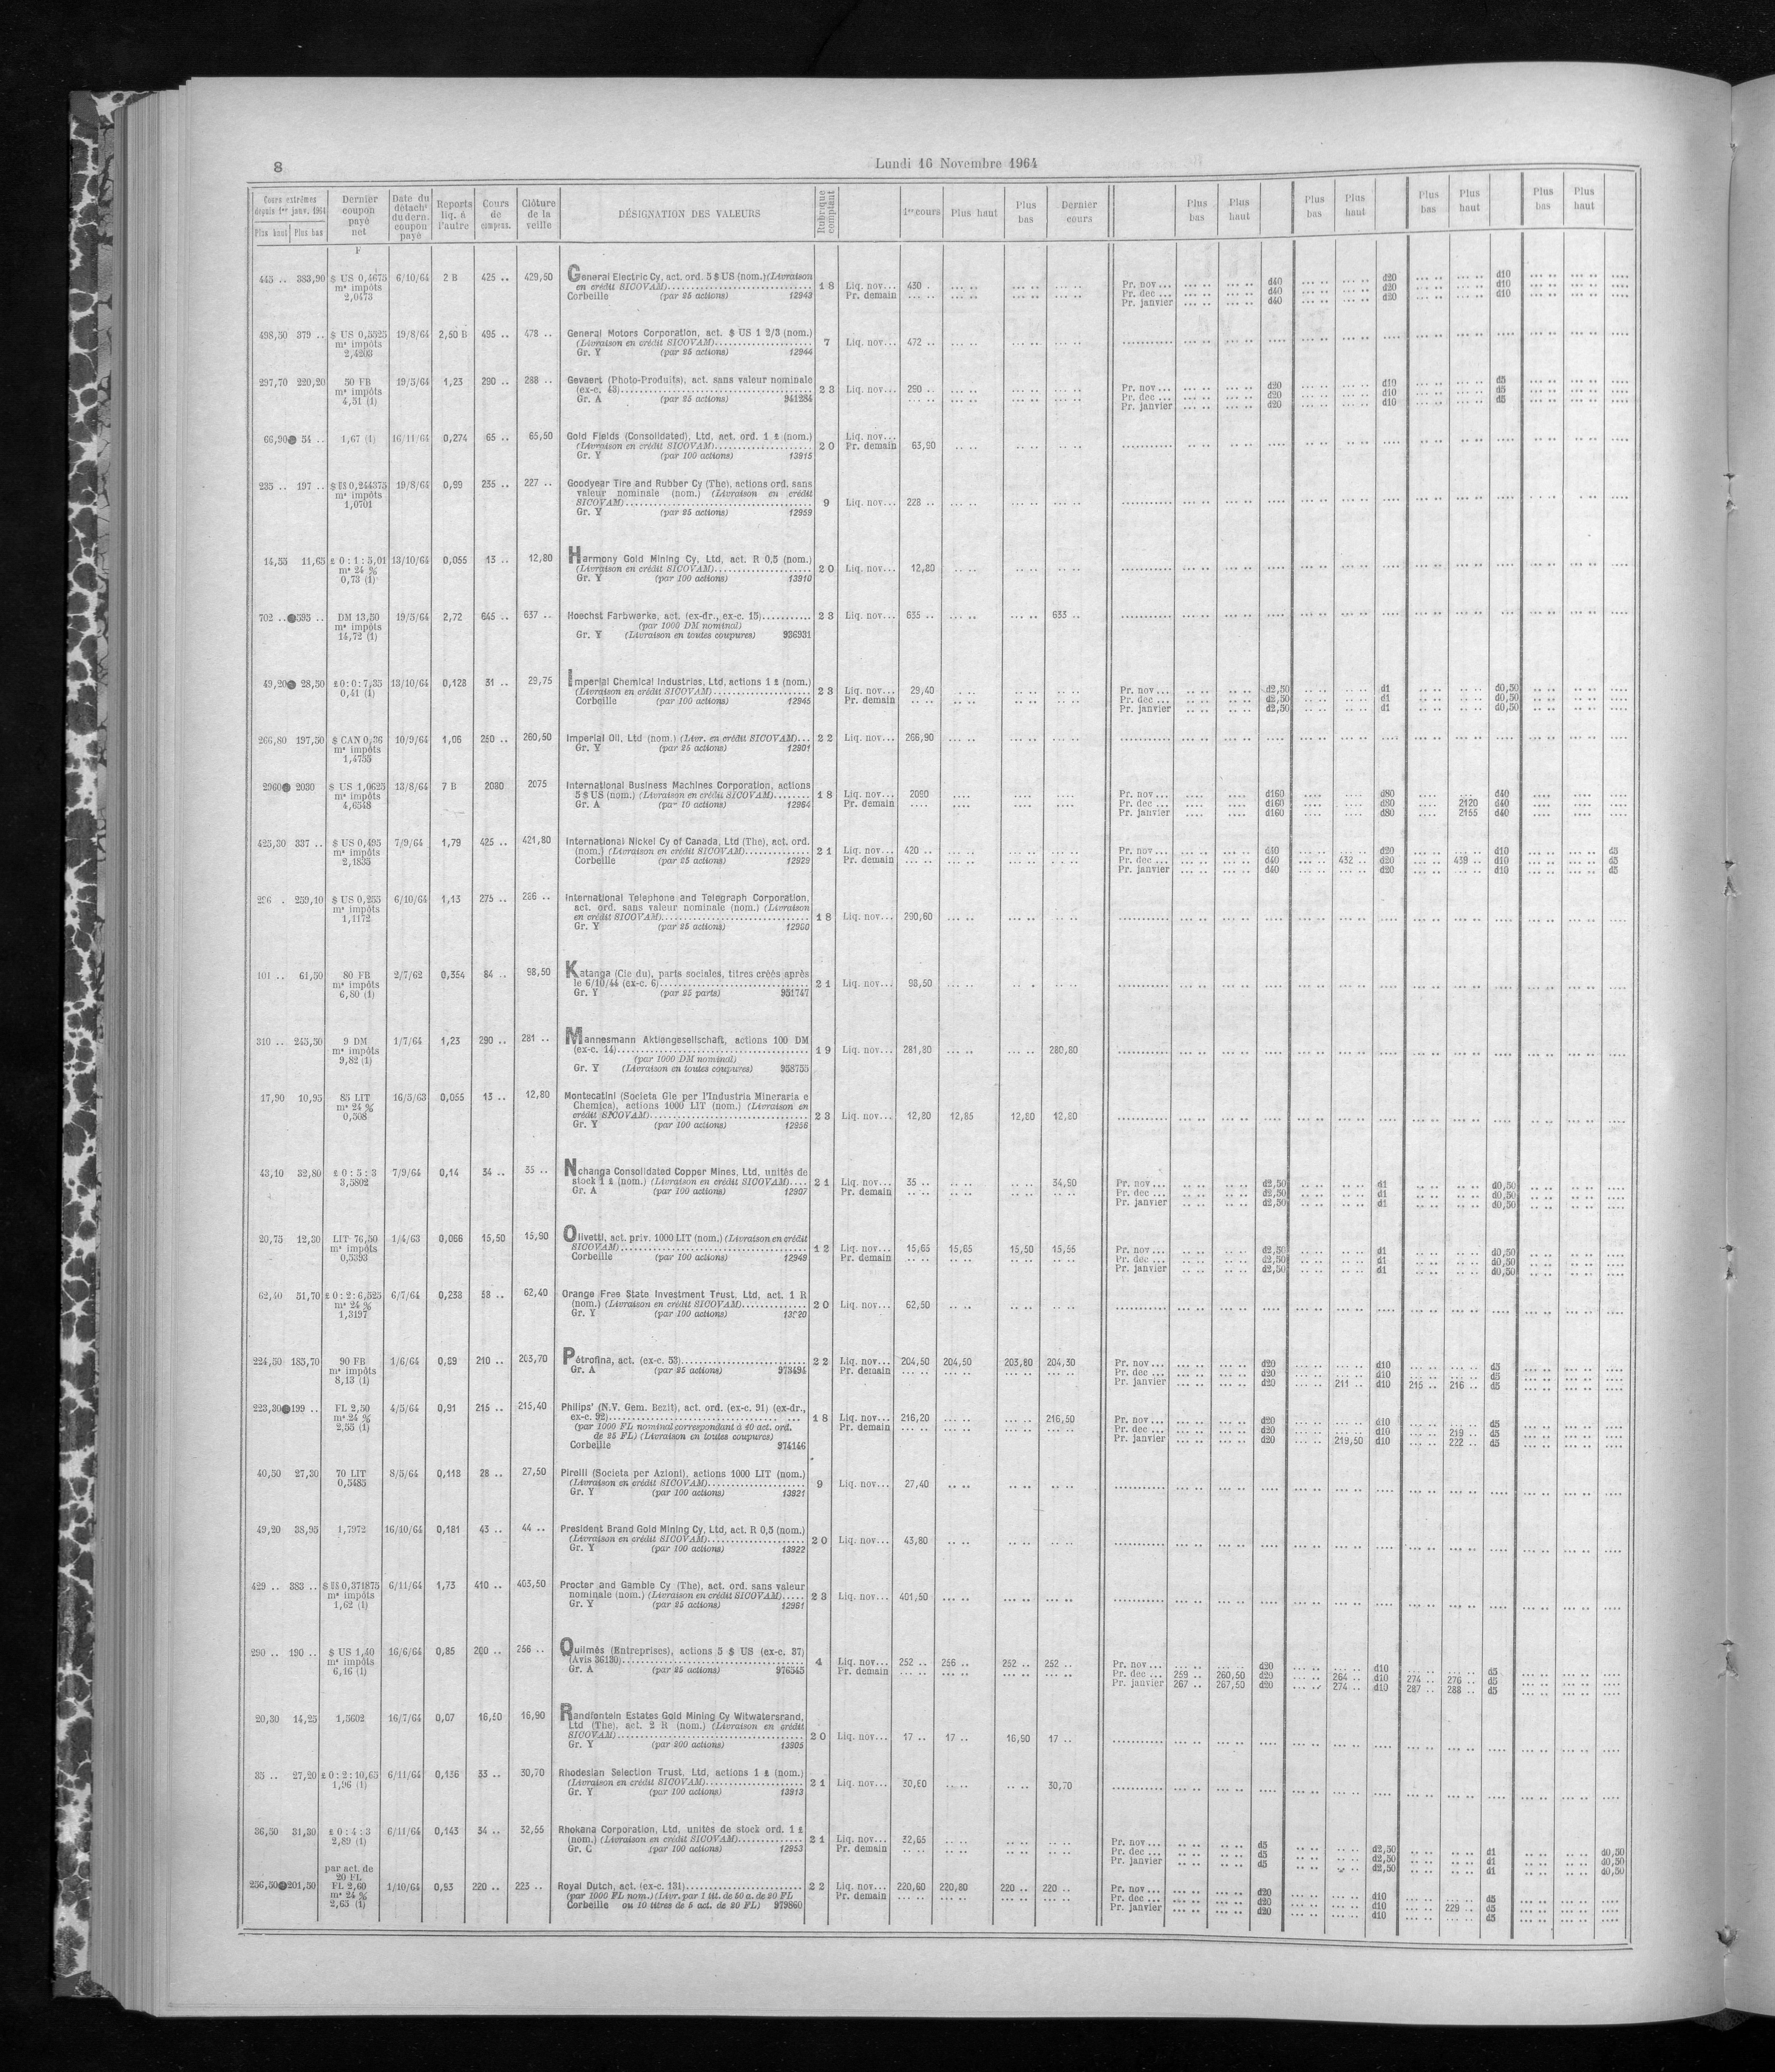 8
Lundi 16 Novembre 1964
Cours extrêmes depuis 1er janv. 1964 Plus haut Plus bas | Dernier coupon payé net | Date du détacht du dern. coupon payé | Reports liq. à l'autre | Cours de compens. | Clôture de la veille | DÉSIGNATION DES VALEURS | Rubrique comptant | 1er cours | Plus haut | Plus bas | Dernier cours | Plus bas | Plus haut | Plus bas | Plus haut | Plus bas | Plus haut | Plus bas | Plus haut
F
445 .. 383,90 $ US 0,4675 6/10/64 2 B 425 .. 429,50 General Electric Cy, act. ord. 5 $ US (nom.) (Livraison
m^s impôts en crédit SICOVAM) 18 Liq. nov... 430 . Pr. nov... d40 d20 d10
2,0473 Corbeille (par 25 actions) 12943 Pr. demain Pr. dec ... d40 d20 d10
Pr. janvier d40 d20 d10
498,50 379 .. $ US 0,5525 19/8/64 2,50 B 495 .. 478 .. General Motors Corporation, act. $ US 1 2/3 (nom.)
m^s impôts (Livraison en crédit SICOVAM) 7 Liq. nov... 472 ..
2,4203 Gr. Y (par 25 actions) 12944
297,70 220,20 50 FB 19/5/64 1,23 290 .. 288 .. Gevaert (Photo-Produits), act. sans valeur nominale
m^s impôts (ex-c. 43) 23 Liq. nov... 290 .. Pr. nov... d20 d10 d5
4,51 (1) Gr. A (par 25 actions) 941284 Pr. dec ... d20 d10 d5
Pr. janvier d20 d10 d5
66,90 54 .. 1,67 (1) 16/11/64 0,274 65 .. 65,50 Gold Fields (Consolidated), Ltd, act. ord. 1 £ (nom.) Liq. nov...
(Livraison en crédit SICOVAM) 20 Pr. demain 63,90
Gr. Y (par 100 actions) 13915
235 .. 197 .. $ US 0,244375 19/8/64 0,99 235 .. 227 .. Goodyear Tire and Rubber Cy (The), actions ord. sans
m^s impôts valeur nominale (nom.) (Livraison en crédit
1,0701 SICOVAM) 9 Liq. nov... 228 ..
Gr. Y (par 25 actions) 12959
14,55 11,65 £ 0 : 1 : 5,01 13/10/64 0,055 13 .. 12,80 Harmony Gold Mining Cy, Ltd, act. R 0,5 (nom.)
m^s 24 % (Livraison en crédit SICOVAM) 20 Liq. nov... 12,80
0,73 (1) Gr. Y (par 100 actions) 13910
702 .. 595 .. DM 13,50 19/5/64 2,72 645 .. 637 .. Hoechst Farbwerke, act. (ex-dr., ex-c. 15) 23 Liq. nov... 635 .. 633 ..
m^s impôts (par 1000 DM nominal)
14,72 (1) Gr. Y (Livraison en toutes coupures) 936931
49,20 28,50 £ 0 : 0 : 7,35 13/10/64 0,128 31 .. 29,75 Imperial Chemical Industries, Ltd, actions 1 £ (nom.)
0,41 (1) (Livraison en crédit SICOVAM) 23 Liq. nov... 29,40 Pr. nov ... d2,50 d1 d0,50
Corbeille (par 100 actions) 12945 Pr. demain Pr. dec ... d2,50 d1 d0,50
Pr. janvier d2,50 d1 d0,50
266,80 197,50 $ CAN 0,36 10/9/64 1,06 250 .. 260,50 Imperial Oil, Ltd (nom.) (Livr. en crédit SICOVAM)... 22 Liq. nov... 266,90
m^s impôts Gr. Y (par 25 actions) 12901
1,4755
2960 2030 $ US 1,0625 13/8/64 7 B 2080 2075 International Business Machines Corporation, actions
m^s impôts 5 $ US (nom.) (Livraison en crédit SICOVAM) 18 Liq. nov... 2090 Pr. nov ... d160 d80 d40
4,6548 Gr. A (par 10 actions) 12964 Pr. demain Pr. dec ... d160 d80 2120 d40
Pr. janvier d160 d80 2155 d40
425,30 337 .. $ US 0,495 7/9/64 1,79 425 .. 421,80 International Nickel Cy of Canada, Ltd (The), act. ord.
m^s impôts (nom.) (Livraison en crédit SICOVAM) 21 Liq. nov... 420 .. Pr. nov ... d40 d20 d10 d5
2,1835 Corbeille (par 25 actions) 12929 Pr. demain Pr. dec ... d40 432 .. d20 439 .. d10 d5
Pr. janvier d40 d20 d10 d5
296 . 259,10 $ US 0,255 6/10/64 1,13 275 .. 286 .. International Telephone and Telegraph Corporation,
m^s impôts act. ord. sans valeur nominale (nom.) (Livraison
1,1172 en crédit SICOVAM) 18 Liq. nov... 290,60
Gr. Y (par 25 actions) 12960
101 .. 61,50 80 FB 2/7/62 0,354 84 .. 98,50 Katanga (Cie du), parts sociales, titres créés après
m^s impôts le 6/10/44 (ex-c. 6) 21 Liq. nov... 98,50
6,80 (1) Gr. Y (par 25 parts) 951747
310 .. 243,50 9 DM 1/7/64 1,23 290 .. 281 .. Mannesmann Aktiengesellschaft, actions 100 DM
m^s impôts (ex-c. 14) 19 Liq. nov... 281,80 280,80
9,82 (1) (par 1000 DM nominal)
Gr. Y (Livraison en toutes coupures) 958755
17,90 10,95 85 LIT 16/5/63 0,055 13 .. 12,80 Montecatini (Societa Gle per l'Industria Mineraria e
m^s 24 % Chemica), actions 1000 LIT (nom.) (Livraison en
0,508 crédit SICOVAM) 23 Liq. nov... 12,80 12,85 12,80 12,80
Gr. Y (par 100 actions) 12956
43,10 32,80 £ 0 : 5 : 3 7/9/64 0,14 34 .. 35 .. Nchanga Consolidated Copper Mines, Ltd, unités de
3,5802 stock 1 £ (nom.) (Livraison en crédit SICOVAM).... 21 Liq. nov... 35 .. 34,90 Pr. nov ... d2,50 d1 d0,50
Gr. A (par 100 actions) 12907 Pr. demain Pr. dec ... d2,50 d1 d0,50
Pr. janvier d2,50 d1 d0,50
20,75 12,30 LIT 76,50 1/4/63 0,066 15,50 15,90 Olivetti, act. priv. 1000 LIT (nom.) (Livraison en crédit
m^s impôts SICOVAM) 12 Liq. nov... 15,65 15,65 15,50 15,55 Pr. nov ... d2,50 d1 d0,50
0,5393 Corbeille (par 100 actions) 12949 Pr. demain Pr. dec ... d2,50 d1 d0,50
Pr. janvier d2,50 d1 d0,50
62,40 51,70 £ 0 : 2 : 6,525 6/7/64 0,238 58 .. 62,40 Orange Free State Investment Trust, Ltd, act. 1 R
m^s 24 % (nom.) (Livraison en crédit SICOVAM) 20 Liq. nov... 62,50
1,3197 Gr. Y (par 100 actions)
224,50 185,70 90 FB 1/6/64 0,89 210 .. 203,70 Pétrofina, act. (ex-c. 53) 22 Liq. nov... 204,50 204,50 203,80 204,30 Pr. nov ... d20 d10 d5
m^s impôts Gr. A (par 25 actions) 973494 Pr. demain Pr. dec ... d20 d10 d5
8,13 (1) Pr. janvier d20 211 .. d10 215 .. 216 .. d5
223,30 199 .. FL 2,50 4/5/64 0,91 215 .. 215,40 Philips' (N.V. Gem. Bezit), act. ord. (ex-c. 91) (ex-dr.,
m^s 24 % ex-c. 92) 18 Liq. nov... 216,20 216,50 Pr. nov ... d20 d10 d5
2,55 (1) (par 1000 FL nominal correspondant à 40 act. ord. Pr. demain Pr. dec ... d20 d10 219 .. d5
de 25 FL) (Livraison en toutes coupures) Pr. janvier d20 219,50 d10 222 .. d5
Corbeille 974146
40,50 27,30 70 LIT 8/5/64 0,118 28 .. 27,50 Pirelli (Societa per Azioni), actions 1000 LIT (nom.)
0,5485 (Livraison en crédit SICOVAM) 9 Liq. nov... 27,40
Gr. Y (par 100 actions) 13921
49,20 38,95 1,7972 16/10/64 0,181 43 .. 44 .. President Brand Gold Mining Cy, Ltd, act. R 0,5 (nom.)
(Livraison en crédit SICOVAM) 20 Liq. nov... 43,80
Gr. Y (par 100 actions) 13922
429 .. 383 .. $ US 0,371875 6/11/64 1,73 410 .. 403,50 Procter and Gamble Cy (The), act. ord. sans valeur
m^s impôts nominale (nom.) (Livraison en crédit SICOVAM)..... 23 Liq. nov... 401,50
1,62 (1) Gr. Y (par 25 actions) 12961
290 .. 190 .. $ US 1,40 16/6/64 0,85 200 .. 256 .. Quilmès (Entreprises), actions 5 $ US (ex-c. 37)
m^s impôts (Avis 36130) 4 Liq. nov... 252 .. 256 .. 252 .. 252 .. Pr. nov ... d20 d10 d5
6,16 (1) Gr. A (par 25 actions) 976545 Pr. demain Pr. dec ... 259 .. 260,50 d20 264 .. d10 274 .. 276 .. d5
Pr. janvier 267 .. 267,50 d20 274 .. d10 287 .. 288 .. d5
20,30 14,25 1,5602 16/7/64 0,07 16,50 16,90 Randfontein Estates Gold Mining Cy Witwatersrand,
Ltd (The), act. 2 R (nom.) (Livraison en crédit
SICOVAM) 20 Liq. nov... 17 .. 17 .. 16,90 17 ..
Gr. Y (par 200 actions) 13905
35 .. 27,20 £ 0 : 2 : 10,65 6/11/64 0,136 33 .. 30,70 Rhodesian Selection Trust, Ltd, actions 1 £ (nom.)
1,96 (1) (Livraison en crédit SICOVAM) 21 Liq. nov... 30,60 30,70
Gr. Y (par 100 actions) 13913
36,50 31,30 £ 0 : 4 : 3 6/11/64 0,143 34 .. 32,55 Rhokana Corporation, Ltd, unités de stock ord. 1 £
2,89 (1) (nom.) (Livraison en crédit SICOVAM) 21 Liq. nov... 32,65 Pr. nov ... d5 d2,50 d1 d0,50
Gr. C (par 100 actions) 12953 Pr. demain Pr. dec ... d5 d2,50 d1 d0,50
Pr. janvier d5 d2,50 d1 d0,50
par act. de
20 FL
256,50 201,50 FL 2,60 1/10/64 0,93 220 .. 223 .. Royal Dutch, act. (ex-c. 131) 22 Liq. nov... 220,60 220,80 220 .. 220 .. Pr. nov ... d20 d10 d5
m^s 24 % (par 1000 FL nom.) (Livr. par 1 tit. de 50 a. de 20 FL Pr. demain Pr. dec ... d20 d10 229 .. d5
2,65 (1) Corbeille ou 10 titres de 5 act. de 20 FL) 979860 Pr. janvier d20 d10 d5